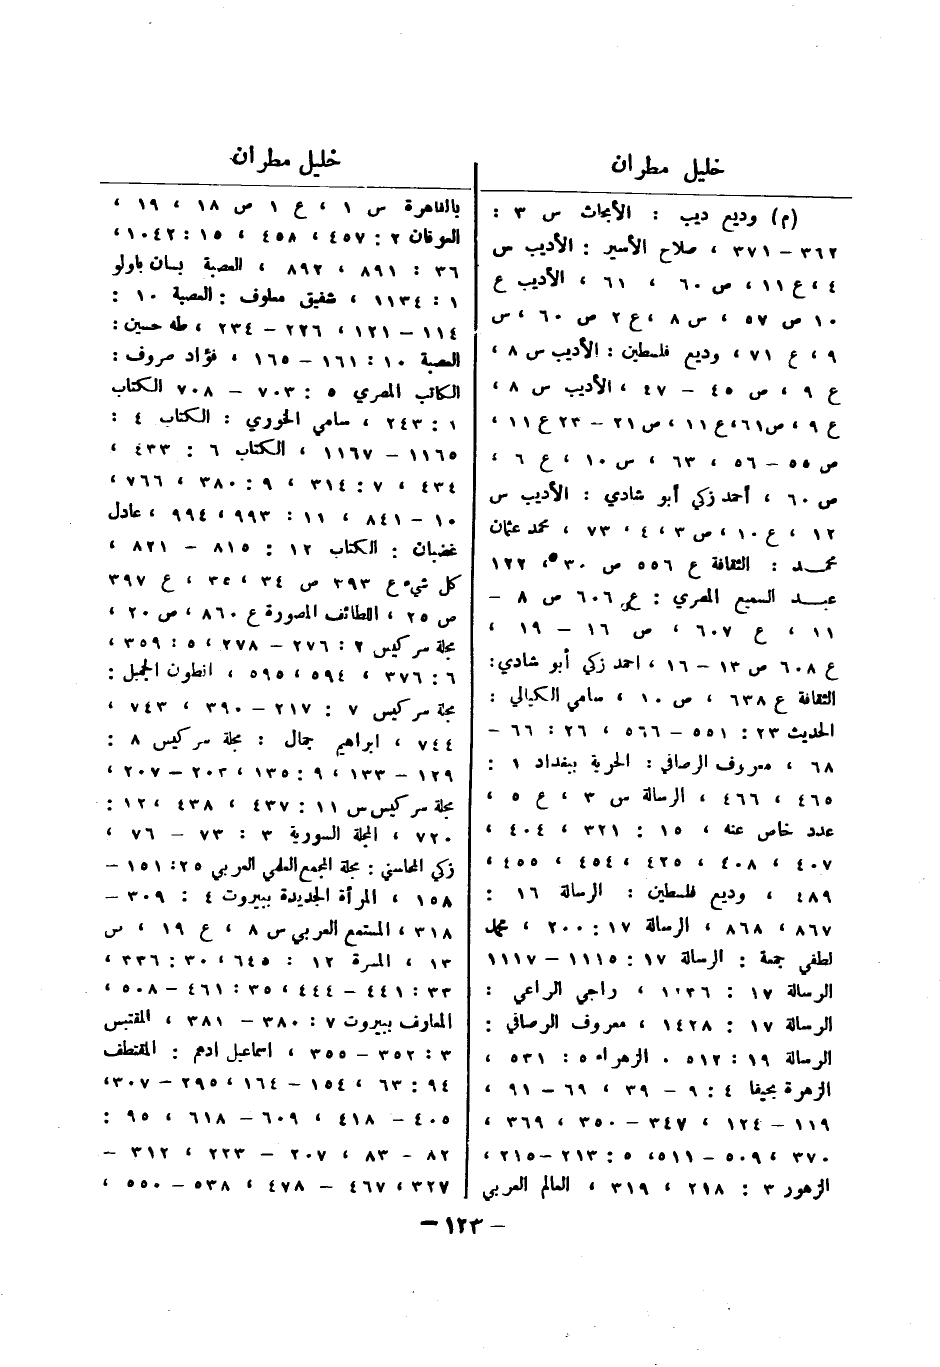 خليل مطران
(م) وديع ديب : الأبحاث س ٣ :
٣٦٢ – ٣٧١ ، صلاح الأسير : الأديب س
٤ ، ع ١١ ، ص ٦٠ ، ٦١ ، الأديب ع
١٠ ص ٥٧ ، س ٨ ، ع ٢ ص ٦٠ ، س
٩ ، ع ٧١ ، وديع فلسطين : الأديب س ٨ ،
ع ٩ ، ص ٤٥ – ٤٧ ، الأديب س ٨ ،
ع ٩ ، ص ٦١ ، ع ١١ ، ص ٢١ – ٢٣ ع ١١ ،
ص ٥٥ – ٥٦ ، ٦٣ ، س ١٠ ، ع ٦ ،
ص ٦٠ ، أحمد زكي أبو شادي : الأديب س
١٢ ، ع ١٠ ، ص ٣ ، ٤ ، ٧٣ ، محمد عثمان
محمد : الثقافة ع ٥٥٦ ص ٣٠ ، ١٢٢
عبد السميع المصري : ع ٦٠٦ ص ٨ –
١١ ، ع ٦٠٧ ، ص ١٦ – ١٩ ،
ع ٦٠٨ ص ١٣ – ١٦ ، احمد زكي أبو شادي :
الثقافة ع ٦٣٨ ، ص ١٠ ، سامي الكيالي :
الحديث ٢٣ : ٥٥١ – ٥٦٦ ، ٢٦ : ٦٦ –
٦٨ ، معروف الرصافي : الحرية ببغداد ١ :
٤٦٥ ، ٤٦٦ ، الرسالة س ٣ ، ع ٥ ،
عدد خاص عنه ، ١٥ : ٣٢١ ، ٤٠٤ ،
٤٠٧ ، ٤٠٨ ، ٤٢٥ ، ٤٥٤ ، ٤٥٥ ،
٤٨٩ ، وديع فلسطين : الرسالة ١٦ :
٨٦٧ ، ٨٦٨ ، الرسالة ١٧ : ٢٠٠ ، محمد
لطفي جمعة : الرسالة ١٧ : ١١١٥ – ١١١٧
الرسالة ١٧ : ، راجي الراعي :
الرسالة ١٧ : ١٤٢٨ ، معروف الرصافي :
الرسالة ١٩ : ٥١٢ . الزهراء ٥ : ٥٣١ ،
الزهرة بحيفا ٤ : ٩ – ٣٩ ، ٦٩ – ٩١ ،
١١٩ – ١٢٤ ، ٣٤٧ – ٣٥٠ ، ٣٦٩ ،
٣٧٠ ، ٥٠٩ – ٥١١ ، ٥ : ٢١٣ – ٢١٥ ،
الزهور ٣ : ٢١٨ ، ٣١٩ ، العالم العربي
خليل مطران
بالقاهرة س ١ ، ع ١ ص ١٨ ، ١٩ ،
العرفان ٢ : ٤٥٧ ، ٤٥٨ ، ١٥ : ١٠٤٢ ،
٣٦ : ٨٩١ ، ٨٩٢ ، العصبة بسان باولو
١ : ١١٣٤ ، شفيق معلوف : العصبة ١٠ :
١١٤ – ١٢١ ، ٢٢٦ – ٢٣٤ ، طه حسين :
العصبة ١٠ : ١٦١ – ١٦٥ ، فؤاد صروف :
الكاتب المصري ٥ : ٧٠٣ – ٧٠٨ الكتاب
١ : ٢٤٣ ، سامي الخوري : الكتاب ٤ :
١١٦٥ – ١١٦٧ ، الكتاب ٦ : ٤٣٣ ،
٤٣٤ ، ٧ : ٣١٤ ، ٩ : ٣٨٠ ، ٧٦٦ ،
١٠ – ٨٤١ ، ١١ : ٩٩٣ ، ٩٩٤ ، عادل
غضبان : الكتاب ١٢ : ٨١٥ – ٨٢١ ،
كل شيء ع ٣٩٣ ص ٣٤ ، ٣٥ ، ع ٣٩٧
ص ٢٥ ، اللطائف المصورة ع ٨٦٠ ، ص ٢٠ ،
مجلة سركيس ٢ : ٢٧٦ – ٢٧٨ ، ٥ : ٣٥٩ ،
٦ : ٣٧٦ ، ٥٩٤ ، ٥٩٥ ، انطون الجميل :
مجلة سركيس ٧ : ٢١٧ – ٣٩٠ ، ٧٤٣ ،
٧٤٤ ، ابراهيم جمال : مجلة سركيس ٨ :
١٢٩ – ١٣٣ ، ٩ : ١٣٥ ، ٢٠٣ – ٢٠٧ ،
مجلة سركيس س ١١ : ٤٣٧ ، ٤٣٨ ، ١٢ :
٧٢٠ ، المجلة السورية ٣ : ٧٣ – ٧٦ ،
زكي المحاسني : مجلة المجمع العلمي العربي ٢٥ : ١٥١ –
١٥٨ ، المرأة الجديدة ببيروت ٤ : ٣٠٩ –
٣١٨ ، المستمع العربي س ٨ ، ع ١٩ ، س
١٣ ، المسرة ١٢ : ٦٤٥ ، ٣٠ : ٣٣٦ ،
٣٣ : ٤٤١ – ٤٤٤ ، ٣٥ : ٤٦١ – ٥٠٨ ،
المعارف ببيروت ٧ : ٣٨٠ – ٣٨١ ، المقتبس
٣ : ٣٥٢ – ٣٥٥ ، اسماعيل ادهم : المقتطف
٩٤ : ٦٣ ، ١٥٤ – ١٦٤ ، ٢٩٥ – ٣٠٧ ،
٤٠٥ – ٤١٨ ، ٦٠٩ – ٦١٨ ، ٩٥ :
٨٢ – ٨٣ ، ٢٠٧ – ٢٢٣ ، ٣١٢ –
٣٢٧ ، ٤٦٧ – ٤٧٨ ، ٥٣٨ – ٥٥٠ ،
– ١٢٣ –